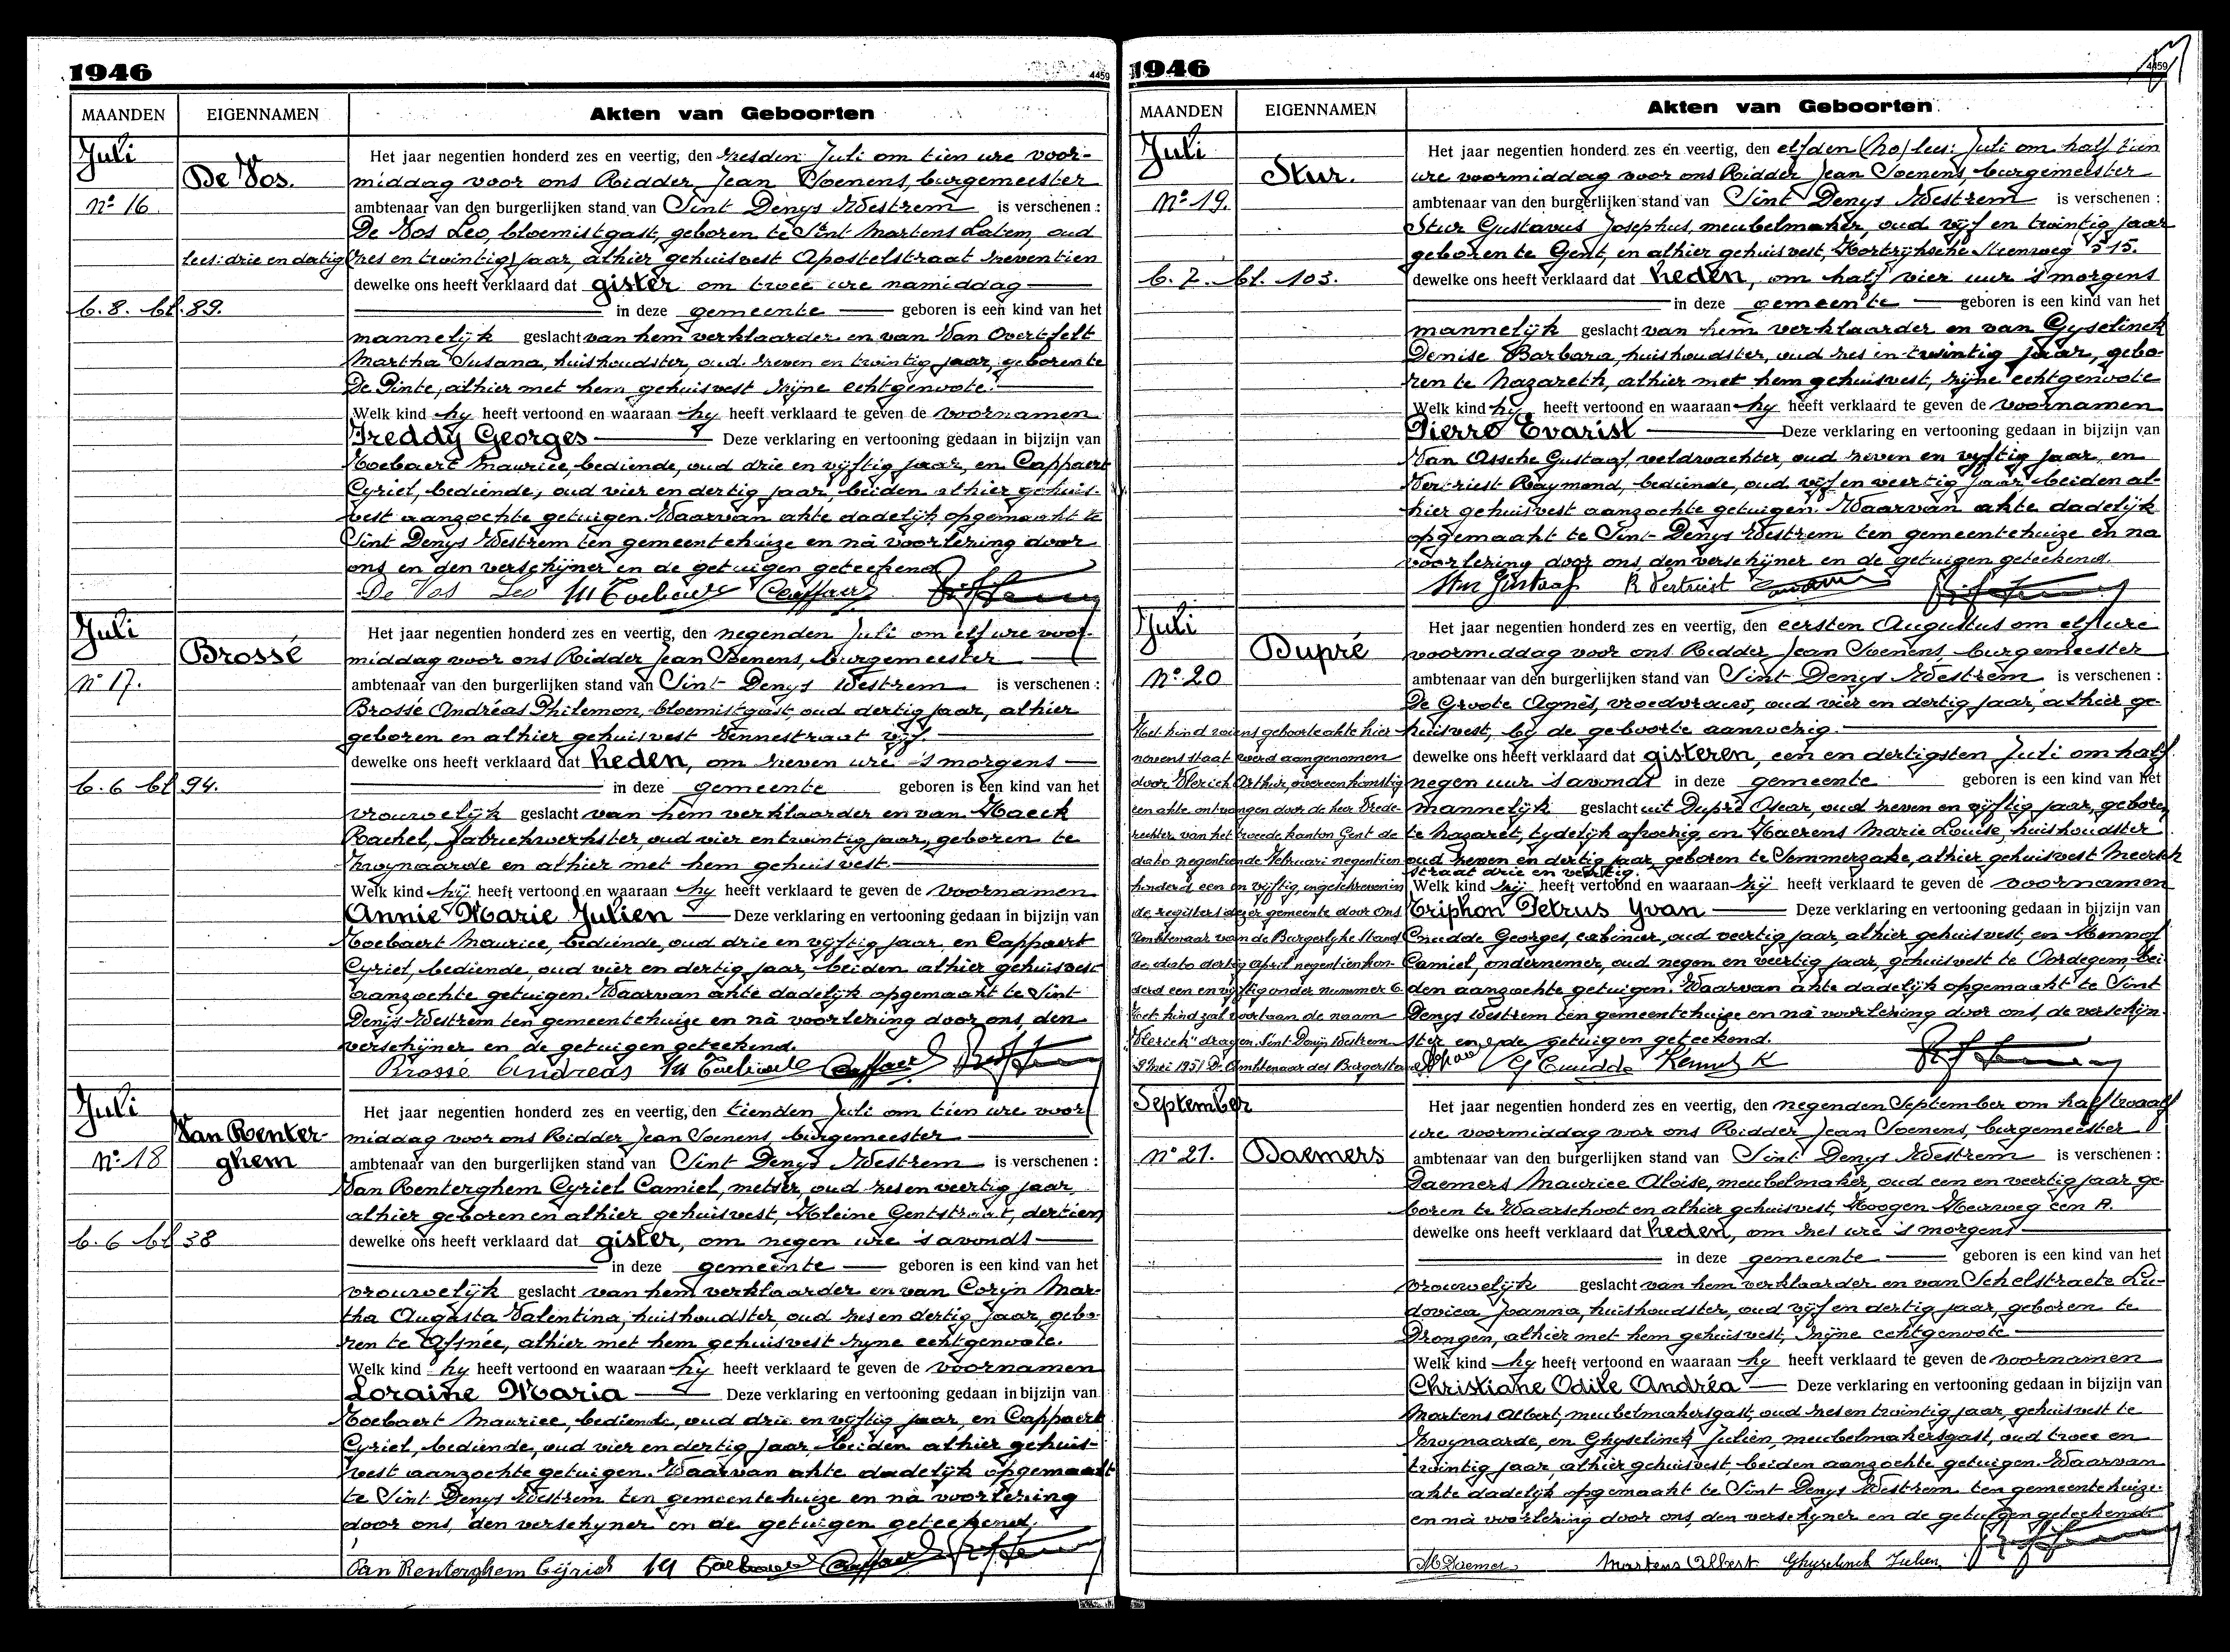 1946
4459
MAANDEN EIGENNAMEN Akten van Geboorten
Juli
De Vos.
No 16
lees: drie en dertig
b. 8. bl. 89.
Het jaar negentien honderd zes en veertig, den zesden Juli om tien ure voor-
middag voor ons Ridder Jean Soenens, burgemeester
ambtenaar van den burgerlijken stand van Sint Denys Westrem is verschenen :
De Vos Leo, bloemistgast, geboren te Sint Martens Latem, oud
(zes en twintig) jaar, alhier gehuisvest Apostelstraat zeventien
dewelke ons heeft verklaard dat gister om twee ure namiddag
in deze gemeente geboren is een kind van het
mannelijk geslacht van hem verklaarder en van Van Overtfelt
Martha Susana, huishoudster, oud zeven en twintig jaar, geboren te
De Pinte, alhier met hem gehuisvest zijne echtgenoote.
Welk kind hy heeft vertoond en waaraan hy heeft verklaard te geven de voornamen
Freddy Georges Deze verklaring en vertooning gedaan in bijzijn van
Koebaert Maurice, bediende, oud drie en vijftig jaar, en Cappaert
Cyriel, bediende, oud vier en dertig jaar, beiden alhier gehuis-
vest aanzochte getuigen. Waarvan akte dadelijk opgemaakt te
Sint Denys Westrem ten gemeentehuize en nà voorlezing door
ons en den verschijner en de getuigen geteekend
De Vos Leo
Juli
Brossé
No 17.
b. 6 bl 94.
Het jaar negentien honderd zes en veertig, den negenden Juli om elf ure voor-
middag voor ons Ridder Jean Soenens, burgemeester
ambtenaar van den burgerlijken stand van Sint Denys Westrem is verschenen :
Brossé Andréas Philemon, bloemistgast, oud dertig jaar, alhier
geboren en alhier gehuisvest Vennestraat vijf.
dewelke ons heeft verklaard dat heden, om zeven ure 's morgens
in deze gemeente geboren is een kind van het
vrouwelijk geslacht van hem verklaarder en van Haeck
Rachel, fabriekwerkster, oud vier en twintig jaar, geboren te
Zwijnaarde en alhier met hem gehuisvest.
Welk kind hij heeft vertoond en waaraan hy heeft verklaard te geven de voornamen
Annie Marie Julien Deze verklaring en vertooning gedaan in bijzijn van
Koebaert Maurice, bediende, oud drie en vijftig jaar, en Cappaert
Cyriel, bediende, oud vier en dertig jaar, beiden alhier gehuisvest
aanzochte getuigen. Waarvan akte dadelijk opgemaakt te Sint
Denys Westrem ten gemeentehuize en nà voorlezing door ons, den
verschijner en de getuigen geteekend.
Brossé Andreas
Juli
Van Renter-
ghem
No 18
b. 6 bl 38
Het jaar negentien honderd zes en veertig, den tienden Juli om tien ure voor
middag voor ons Ridder Jean Soenens, burgemeester
ambtenaar van den burgerlijken stand van Sint Denys Westrem is verschenen :
Van Renterghem Cyriel Camiel, metser, oud zes en veertig jaar,
alhier geboren en alhier gehuisvest, Kleine Gentstraat, dertien
dewelke ons heeft verklaard dat gister, om negen ure 's avonds
in deze gemeente geboren is een kind van het
vrouwelijk geslacht van hem verklaarder en van Coryn Mar-
tha Augusta Valentina, huishoudster, oud zes en dertig jaar, gebo-
ren te Afsnée, alhier met hem gehuisvest zijne echtgenoote.
Welk kind hy heeft vertoond en waaraan hij heeft verklaard te geven de voornamen
Loraine Maria Deze verklaring en vertooning gedaan in bijzijn van
Koebaert Maurice, bediende, oud drie en vijftig jaar, en Cappaert
Cyriel, bediende, oud vier en dertig jaar, beiden alhier gehuis-
vest aanzochte getuigen. Waarvan akte dadelijk opgemaakt
te Sint Denys Westrem ten gemeentehuize en nà voorlezing
door ons, den verschyner en de getuigen geteekend.
Van Renterghem
1946
4459
MAANDEN EIGENNAMEN Akten van Geboorten
Juli
Stur.
No 19.
b. 7. bl. 103.
Het jaar negentien honderd zes en veertig, den elfden (ho) lees: Juli om half tien
ure voormiddag voor ons Ridder Jean Soenens, burgemeester
ambtenaar van den burgerlijken stand van Sint Denys Westrem is verschenen :
Stur Gustavus Josephus, meubelmaker, oud vijf en twintig jaar
geboren te Gent, en alhier gehuisvest, Kortrijksche Steenweg 515.
dewelke ons heeft verklaard dat heden, om half vier uur 's morgens
in deze gemeente geboren is een kind van het
mannelijk geslacht van hem verklaarder en van Gyselinck
Denise Barbara, huishoudster, oud zes en twintig jaar, gebo-
ren te Nazareth, alhier met hem gehuisvest, zijne echtgenoote
Welk kind hy heeft vertoond en waaraan hy heeft verklaard te geven de voornamen
Pierre Evarist Deze verklaring en vertooning gedaan in bijzijn van
Van Assche Gustaaf, veldwachter, oud zeven en vijftig jaar, en
Vertriest Raymond, bediende, oud vijf en veertig jaar beiden al-
hier gehuisvest aanzochte getuigen. Waarvan akte dadelijk
opgemaakt te Sint-Denys Westrem ten gemeentehuize en na
voorlezing door ons, den verschijner en de getuigen geteekend.
Stur Gustaaf R Vertriest
Juli
Dupré
No 20
Het kind wiens geboorteakte hier-
nevens staat werd aangenomen
door Vlerick Arthur, overeenkomstig
een akte ontvangen door de heer Vrede-
rechter van het tweede kanton Gent de
dato negentiende Februari negentien
honderd een en vijftig, ingeschreven in
de registers dezer gemeente door Ons
Ambtenaar van de Burgerlyke Stand
de dato dertig April negentien hon-
derd een en vijftig onder nummer 6.
Het kind zal voortaan de naam
"Vlerick" dragen. Sint-Denijs Westrem
9 Mei 1951 De Ambtenaar des Burgerstand
Het jaar negentien honderd zes en veertig, den eersten Augustus om elf ure
voormiddag voor ons Ridder Jean Soenens burgemeester
ambtenaar van den burgerlijken stand van Sint Denys Westrem is verschenen :
De Groote Agnès, vroedvrouw, oud vier en dertig jaar, alhier ge-
huisvest, by de geboorte aanwezig.
dewelke ons heeft verklaard dat gisteren, een en dertigsten Juli om half
negen uur 's avonds in deze gemeente geboren is een kind van het
mannelijk geslacht uit Dupré Oscar, oud zeven en vijftig jaar, geboren
te Nazaret, tydelijk afwezig, en Haerens Marie Louise, huishoudster
oud zeven en dertig jaar, geboren te Sommerzake, alhier gehuisvest Meersch
straat drie en veertig.
Welk kind zij heeft vertoond en waaraan zij heeft verklaard te geven de voornamen
Triphon Petrus Yvan Deze verklaring en vertooning gedaan in bijzijn van
Cnudde Georges, oud veertig jaar, alhier gehuisvest, en
Camiel, ondernemer, oud negen en veertig jaar, gehuisvest te Oordegem, bei
den aanzochte getuigen. Waarvan akte dadelijk opgemaakt te Sint
Denys Westrem ten gemeentehuize en nà voorlezing door ons, de verschijn-
ster en de getuigen geteekend.
G Cnudde
September
No 21. Daemers
Het jaar negentien honderd zes en veertig, den negenden September om half twaalf
ure voormiddag voor ons Ridder Jean Soenens, burgemeester
ambtenaar van den burgerlijken stand van Sint Denys Westrem is verschenen :
Daemers Maurice Aloise, meubelmaker, oud een en veertig jaar ge-
boren te Waarschoot en alhier gehuisvest, Hoogen Heirweg een A.
dewelke ons heeft verklaard dat heden, om zes ure 's morgens
in deze gemeente geboren is een kind van het
vrouwelijk geslacht van hem verklaarder en van Schelstraete Lu-
dovica Joanna, huishoudster, oud vijf en dertig jaar, geboren te
Drongen, alhier met hem gehuisvest, zijne echtgenoote
Welk kind hy heeft vertoond en waaraan hy heeft verklaard te geven de voornamen
Christiane Odile Andréa Deze verklaring en vertooning gedaan in bijzijn van
Martens Albert, meubelmakersgast, oud zes en twintig jaar, gehuisvest te
Zwijnaarde, en Ghyselinck Julien, meubelmakersgast, oud twee en
twintig jaar, alhier gehuisvest, beiden aanzochte getuigen. Waarvan
akte dadelijk opgemaakt te Sint Denys Westrem ten gemeentehuize
en nà voorlezing door ons, den verschyner en de getuigen geteekend.
M Daemers Martens Albert Ghyselinck Julien